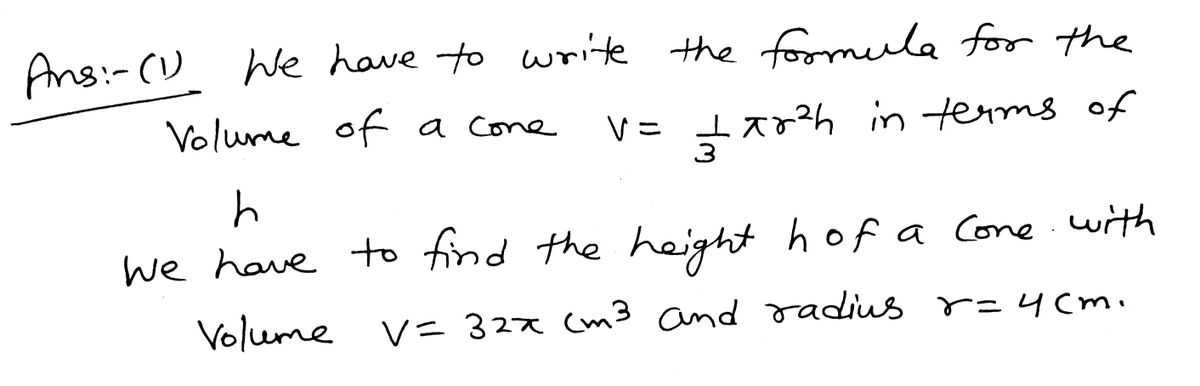 Ans:- (1) We have to write the formula for the
Volume of a cone V = 1/3 πr²h in terms of
h
We have to find the height h of a Cone with
Volume V = 32π cm³ and radius r = 4 cm.